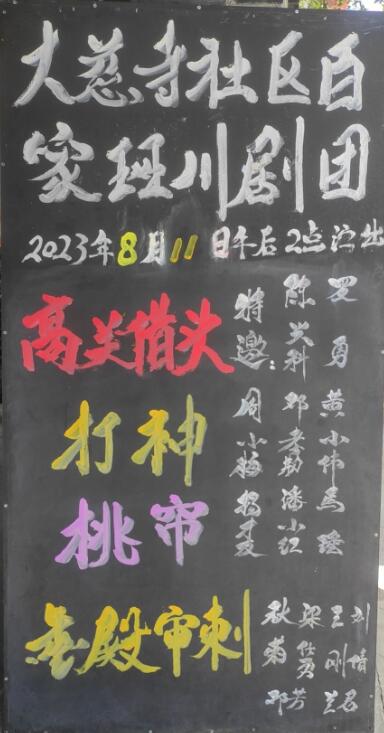 大慈寺社区百
家班川剧团
2023年8月11日午后2点演出
高关借头
打神
桃帘
金殿审刺
特邀:
罗勇
周小梅
黄小伟
潘小红
马瑶
秋菊
梁任勇
王刚
邓芳
兰君